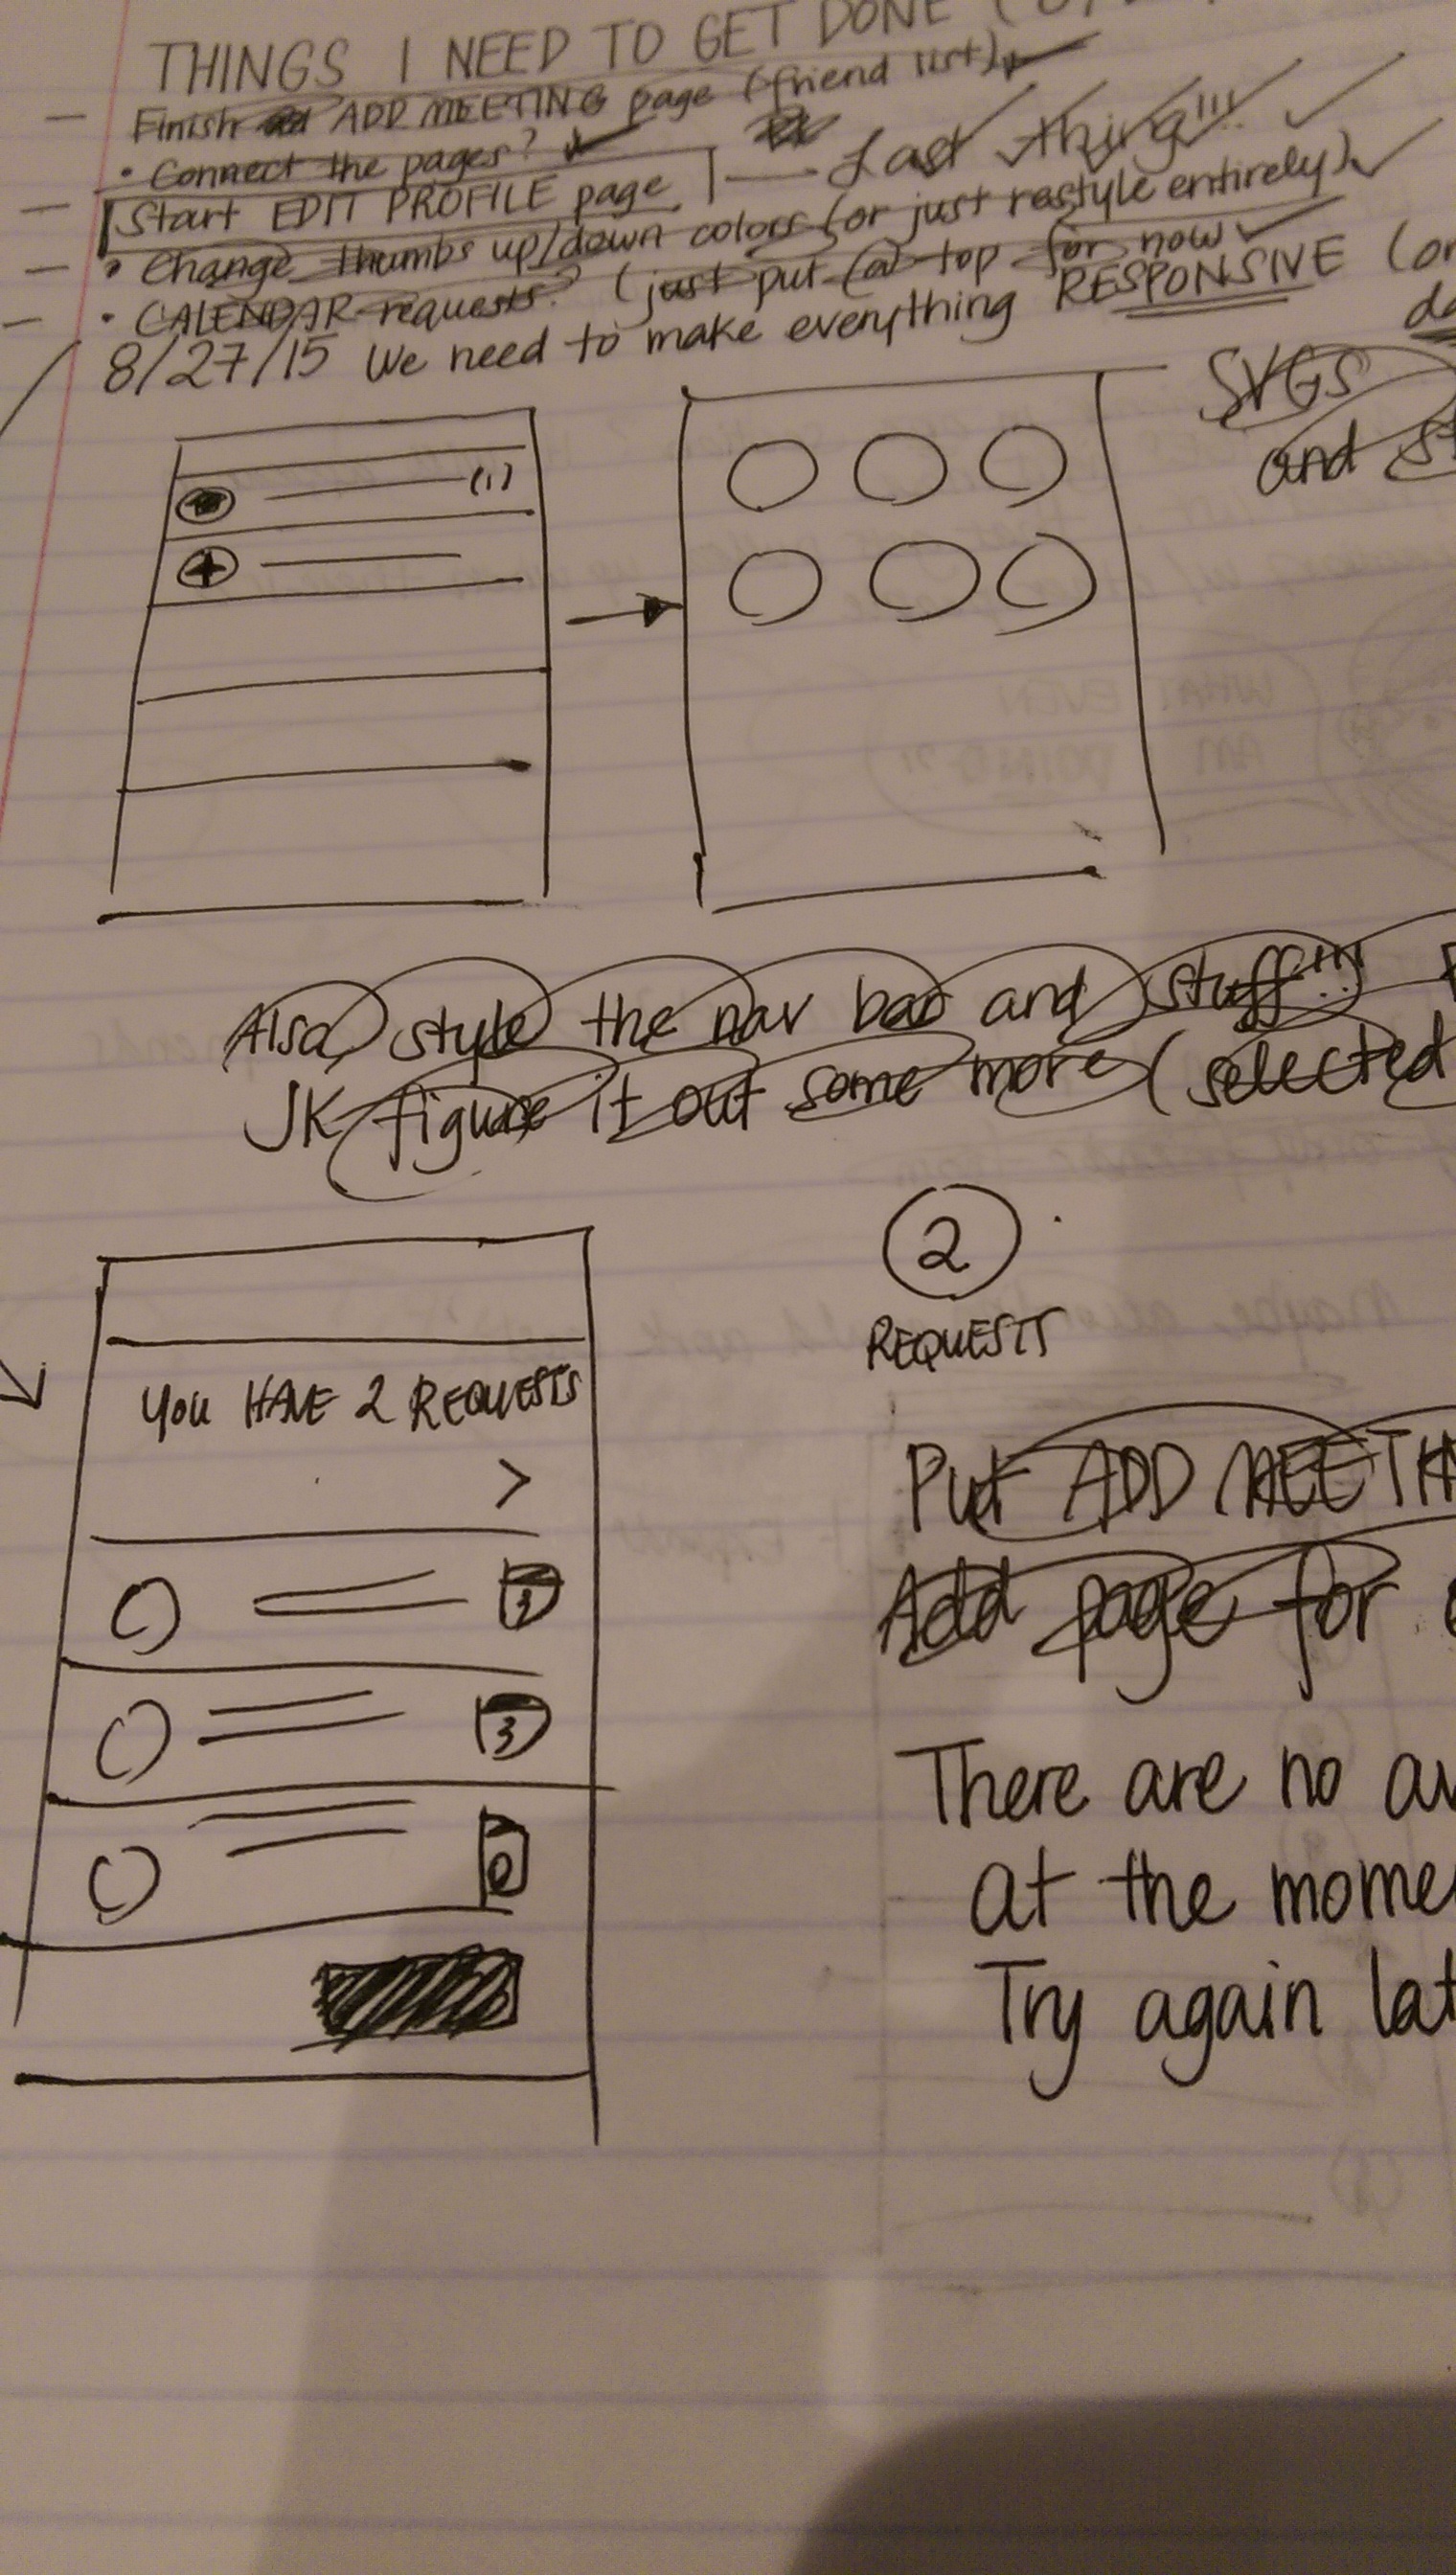 THINGS I NEED TO GET DONE (
Finish ADD MEETING page (friend list)
• Connect the pages?
Start EDIT PROFILE page
Last thing!!!
• Change thumbs up/down colors (or just restyle entirely)
• CALENDAR requests? (just put @ top for now
8/27/15 We need to make everything RESPONSIVE (or
SVGS
and
(1)
Also style the nav bar and stuff!!!
JK figure it out some more (selected
2
REQUESTS
YOU HAVE 2 REQUESTS
>
3
3
0
Put ADD MEETIN
Add page for
There are no av
at the mome
Try again lat